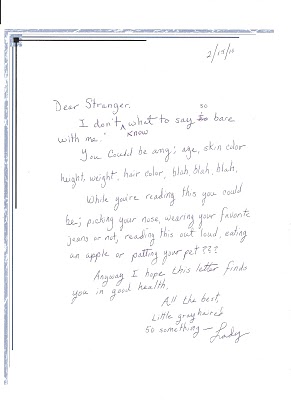 2/15/10
Dear Stranger,
I don't know what to say so bare
with me!
You could be any; age, skin color
hight, weight, hair color, blah, blah, blah.
While you're reading this you could
be; picking your nose, wearing your favorite
jeans or not, reading this out loud, eating
an apple or patting your pet???
Anyway I hope this letter finds
you in good health.
All the best,
Little gray haired
50 something — Lady